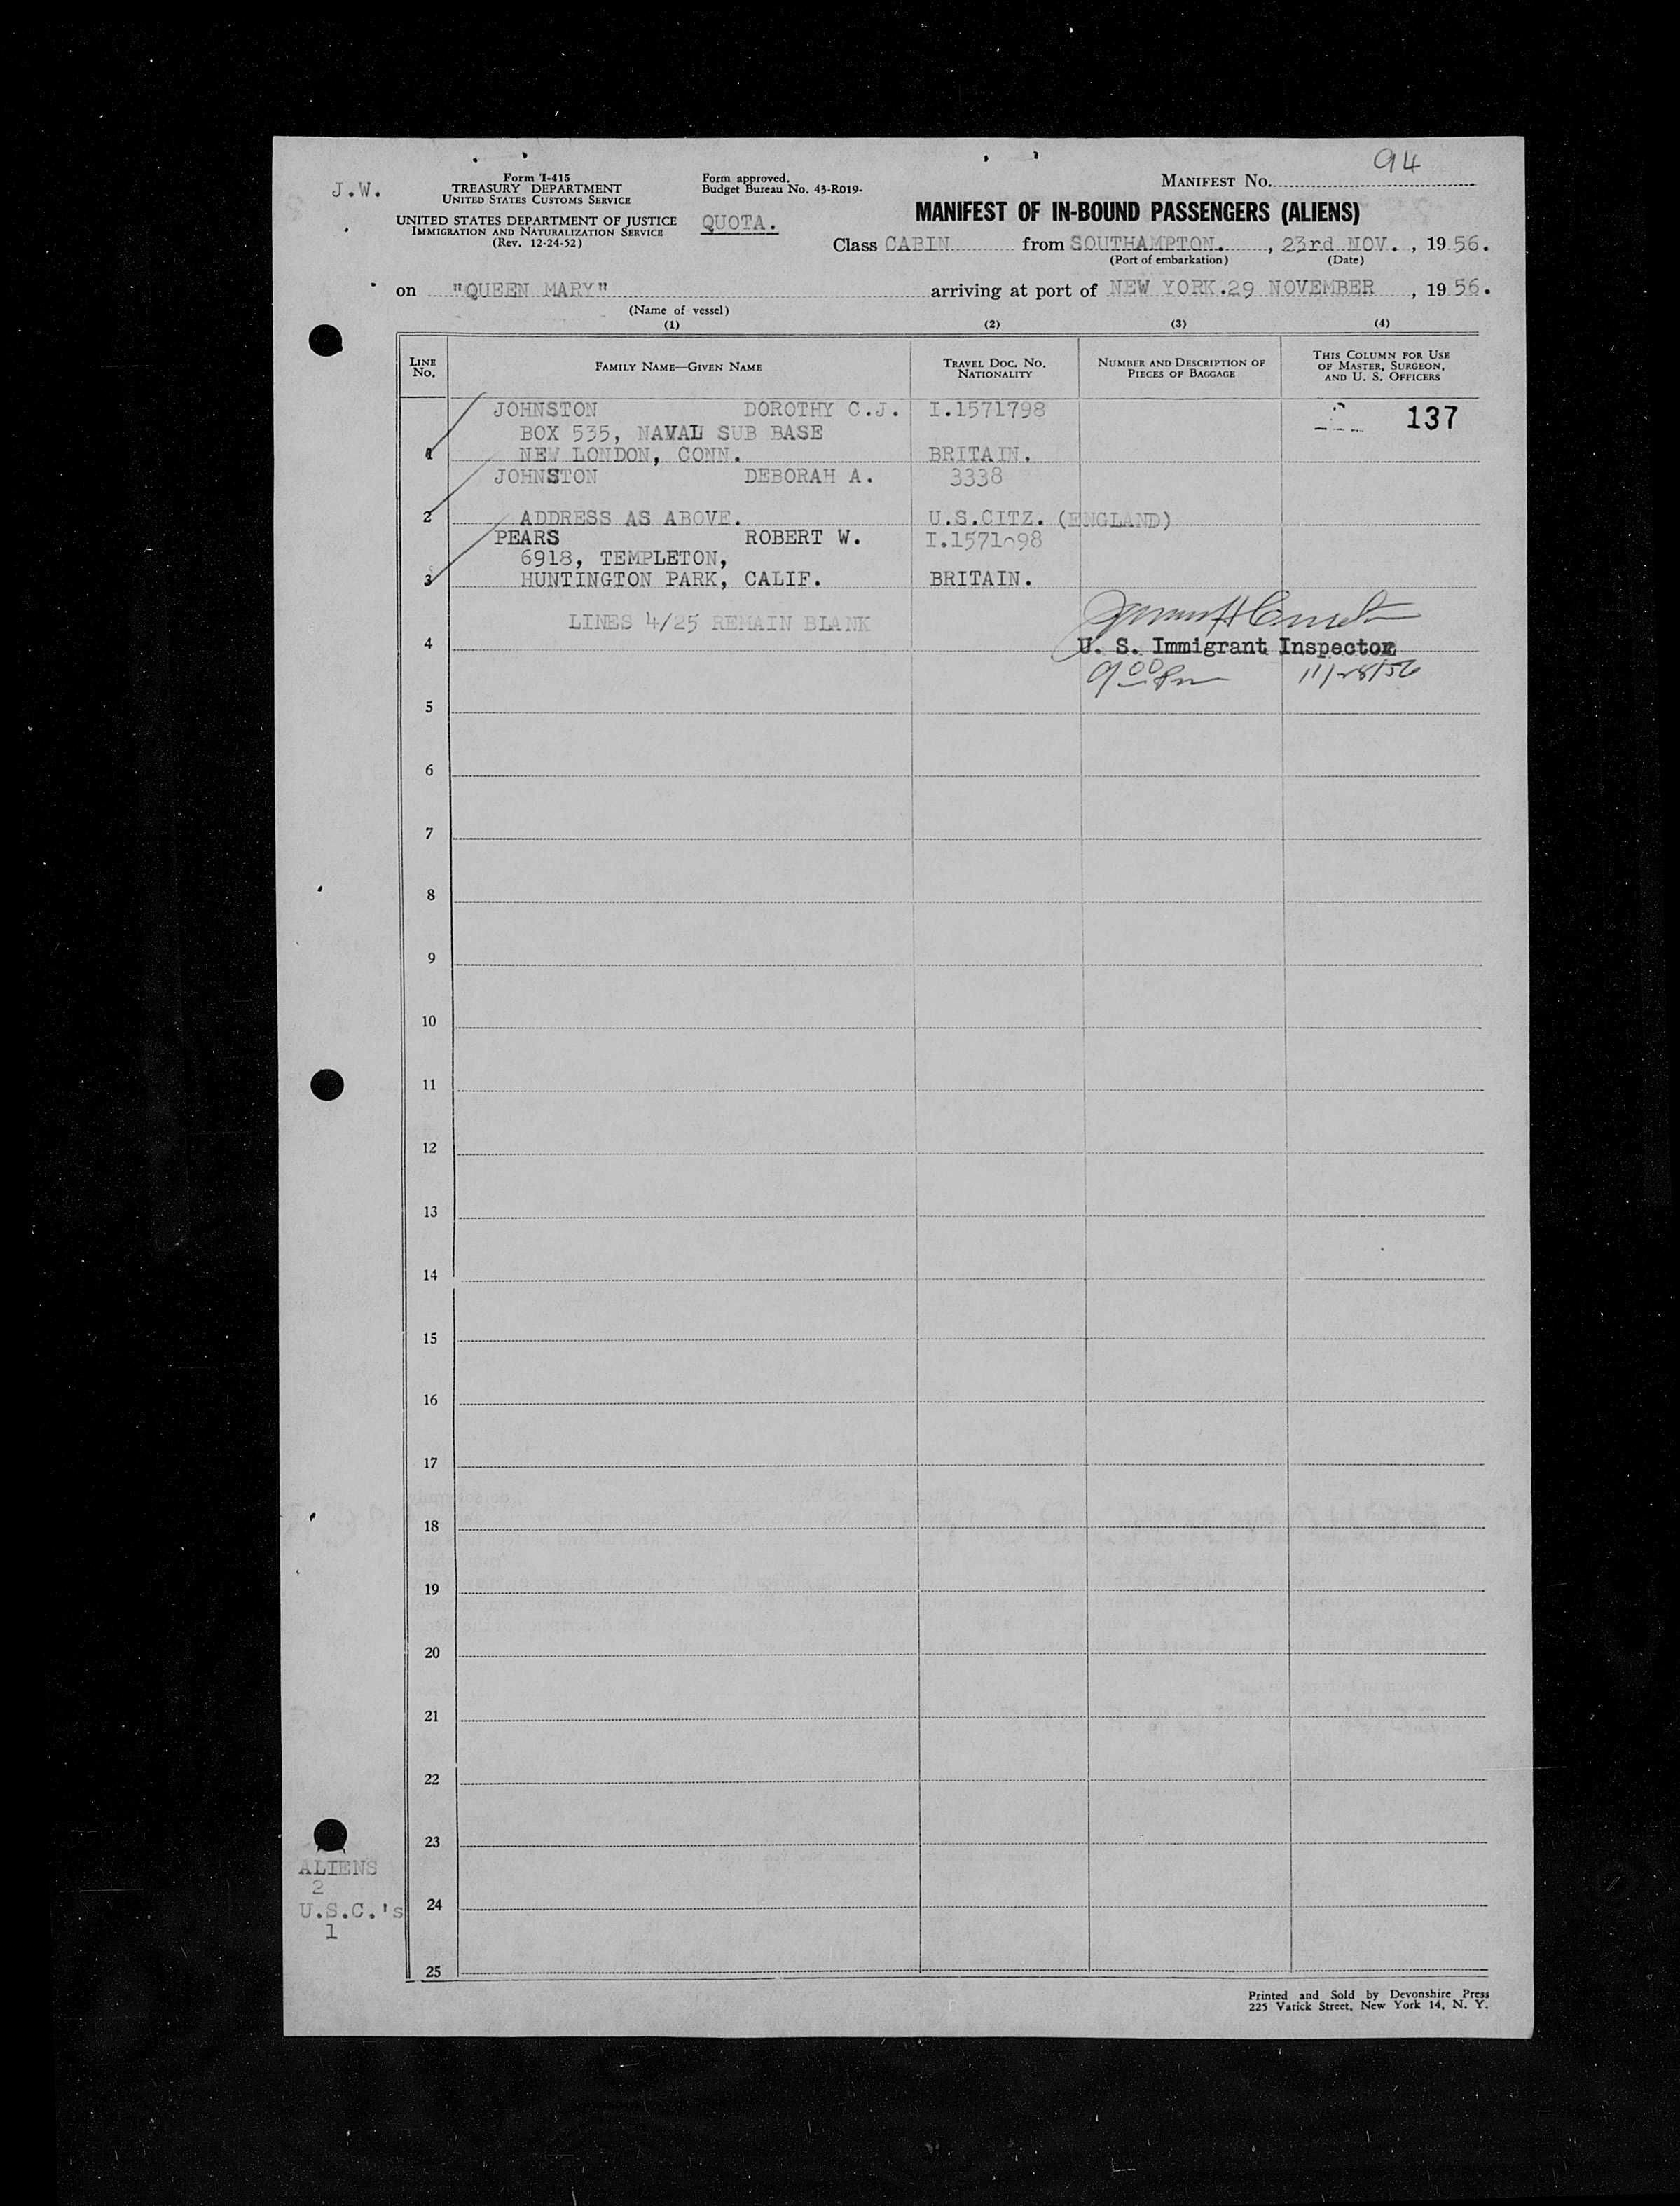 94
J.W.
Form I-415
TREASURY DEPARTMENT
UNITED STATES CUSTOMS SERVICE
UNITED STATES DEPARTMENT OF JUSTICE
IMMIGRATION AND NATURALIZATION SERVICE
(Rev. 12-24-52)
Form approved.
Budget Bureau No. 43-R019-
QUOTA.
MANIFEST NO.
MANIFEST OF IN-BOUND PASSENGERS (ALIENS)
Class CABIN from SOUTHAMPTON. , 23rd NOV. , 1956.
(Port of embarkation) (Date)
on "QUEEN MARY" arriving at port of NEW YORK. 29 NOVEMBER , 1956.
(Name of vessel)
(1) (2) (3) (4)
LINE NO. FAMILY NAME—GIVEN NAME TRAVEL DOC. NO. NATIONALITY NUMBER AND DESCRIPTION OF PIECES OF BAGGAGE THIS COLUMN FOR USE OF MASTER, SURGEON, AND U. S. OFFICERS
JOHNSTON DOROTHY C.J. I.1571798 137
BOX 535, NAVAL SUB BASE
1 NEW LONDON, CONN. BRITAIN.
JOHNSTON DEBORAH A. 3338
2 ADDRESS AS ABOVE. U.S.CITZ. (ENGLAND)
PEARS ROBERT W.
6918, TEMPLETON,
3 HUNTINGTON PARK, CALIF. BRITAIN.
LINES 4/25 REMAIN BLANK
4 U. S. Immigrant Inspector
9 00 Pm 11/28/56
5
6
7
8
9
10
11
12
13
14
15
16
17
18
19
20
21
22
23
24
25
ALIENS
2
U.S.C.'s
1
Printed and Sold by Devonshire Press
225 Varick Street, New York 14, N. Y.